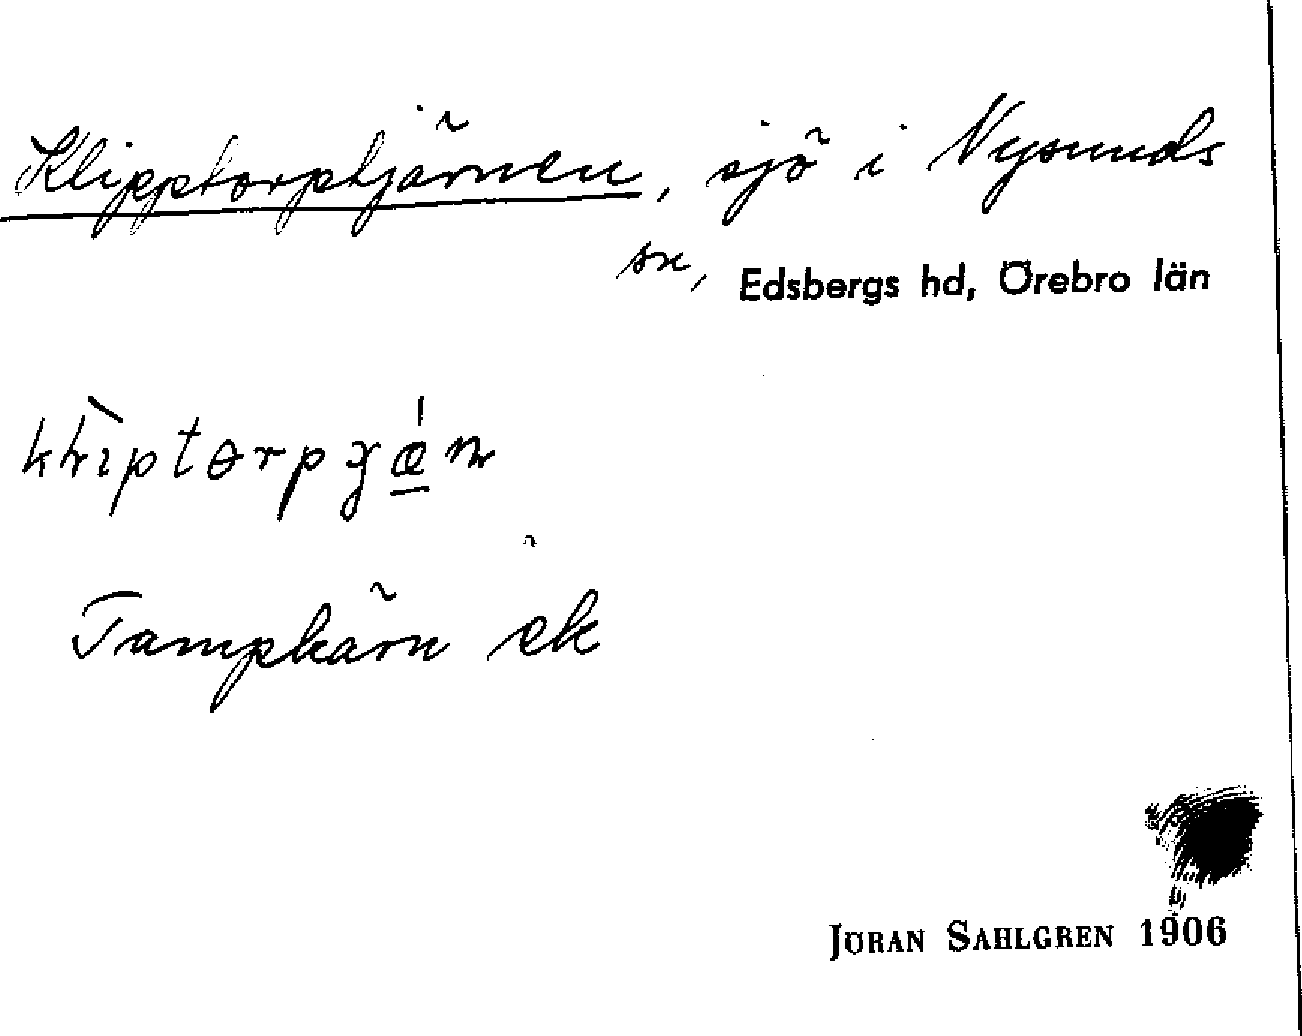 Klipptorptjärnen, sjö i Nysunds
sn, Edsbergs hd, Örebro län
Tampkärn ek
JÖRAN SAHLGREN 1906